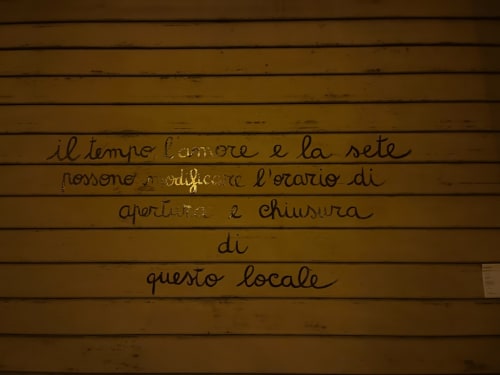 il tempo l'amore e la sete
possono modificare l'orario di
apertura e chiusura
di
questo locale